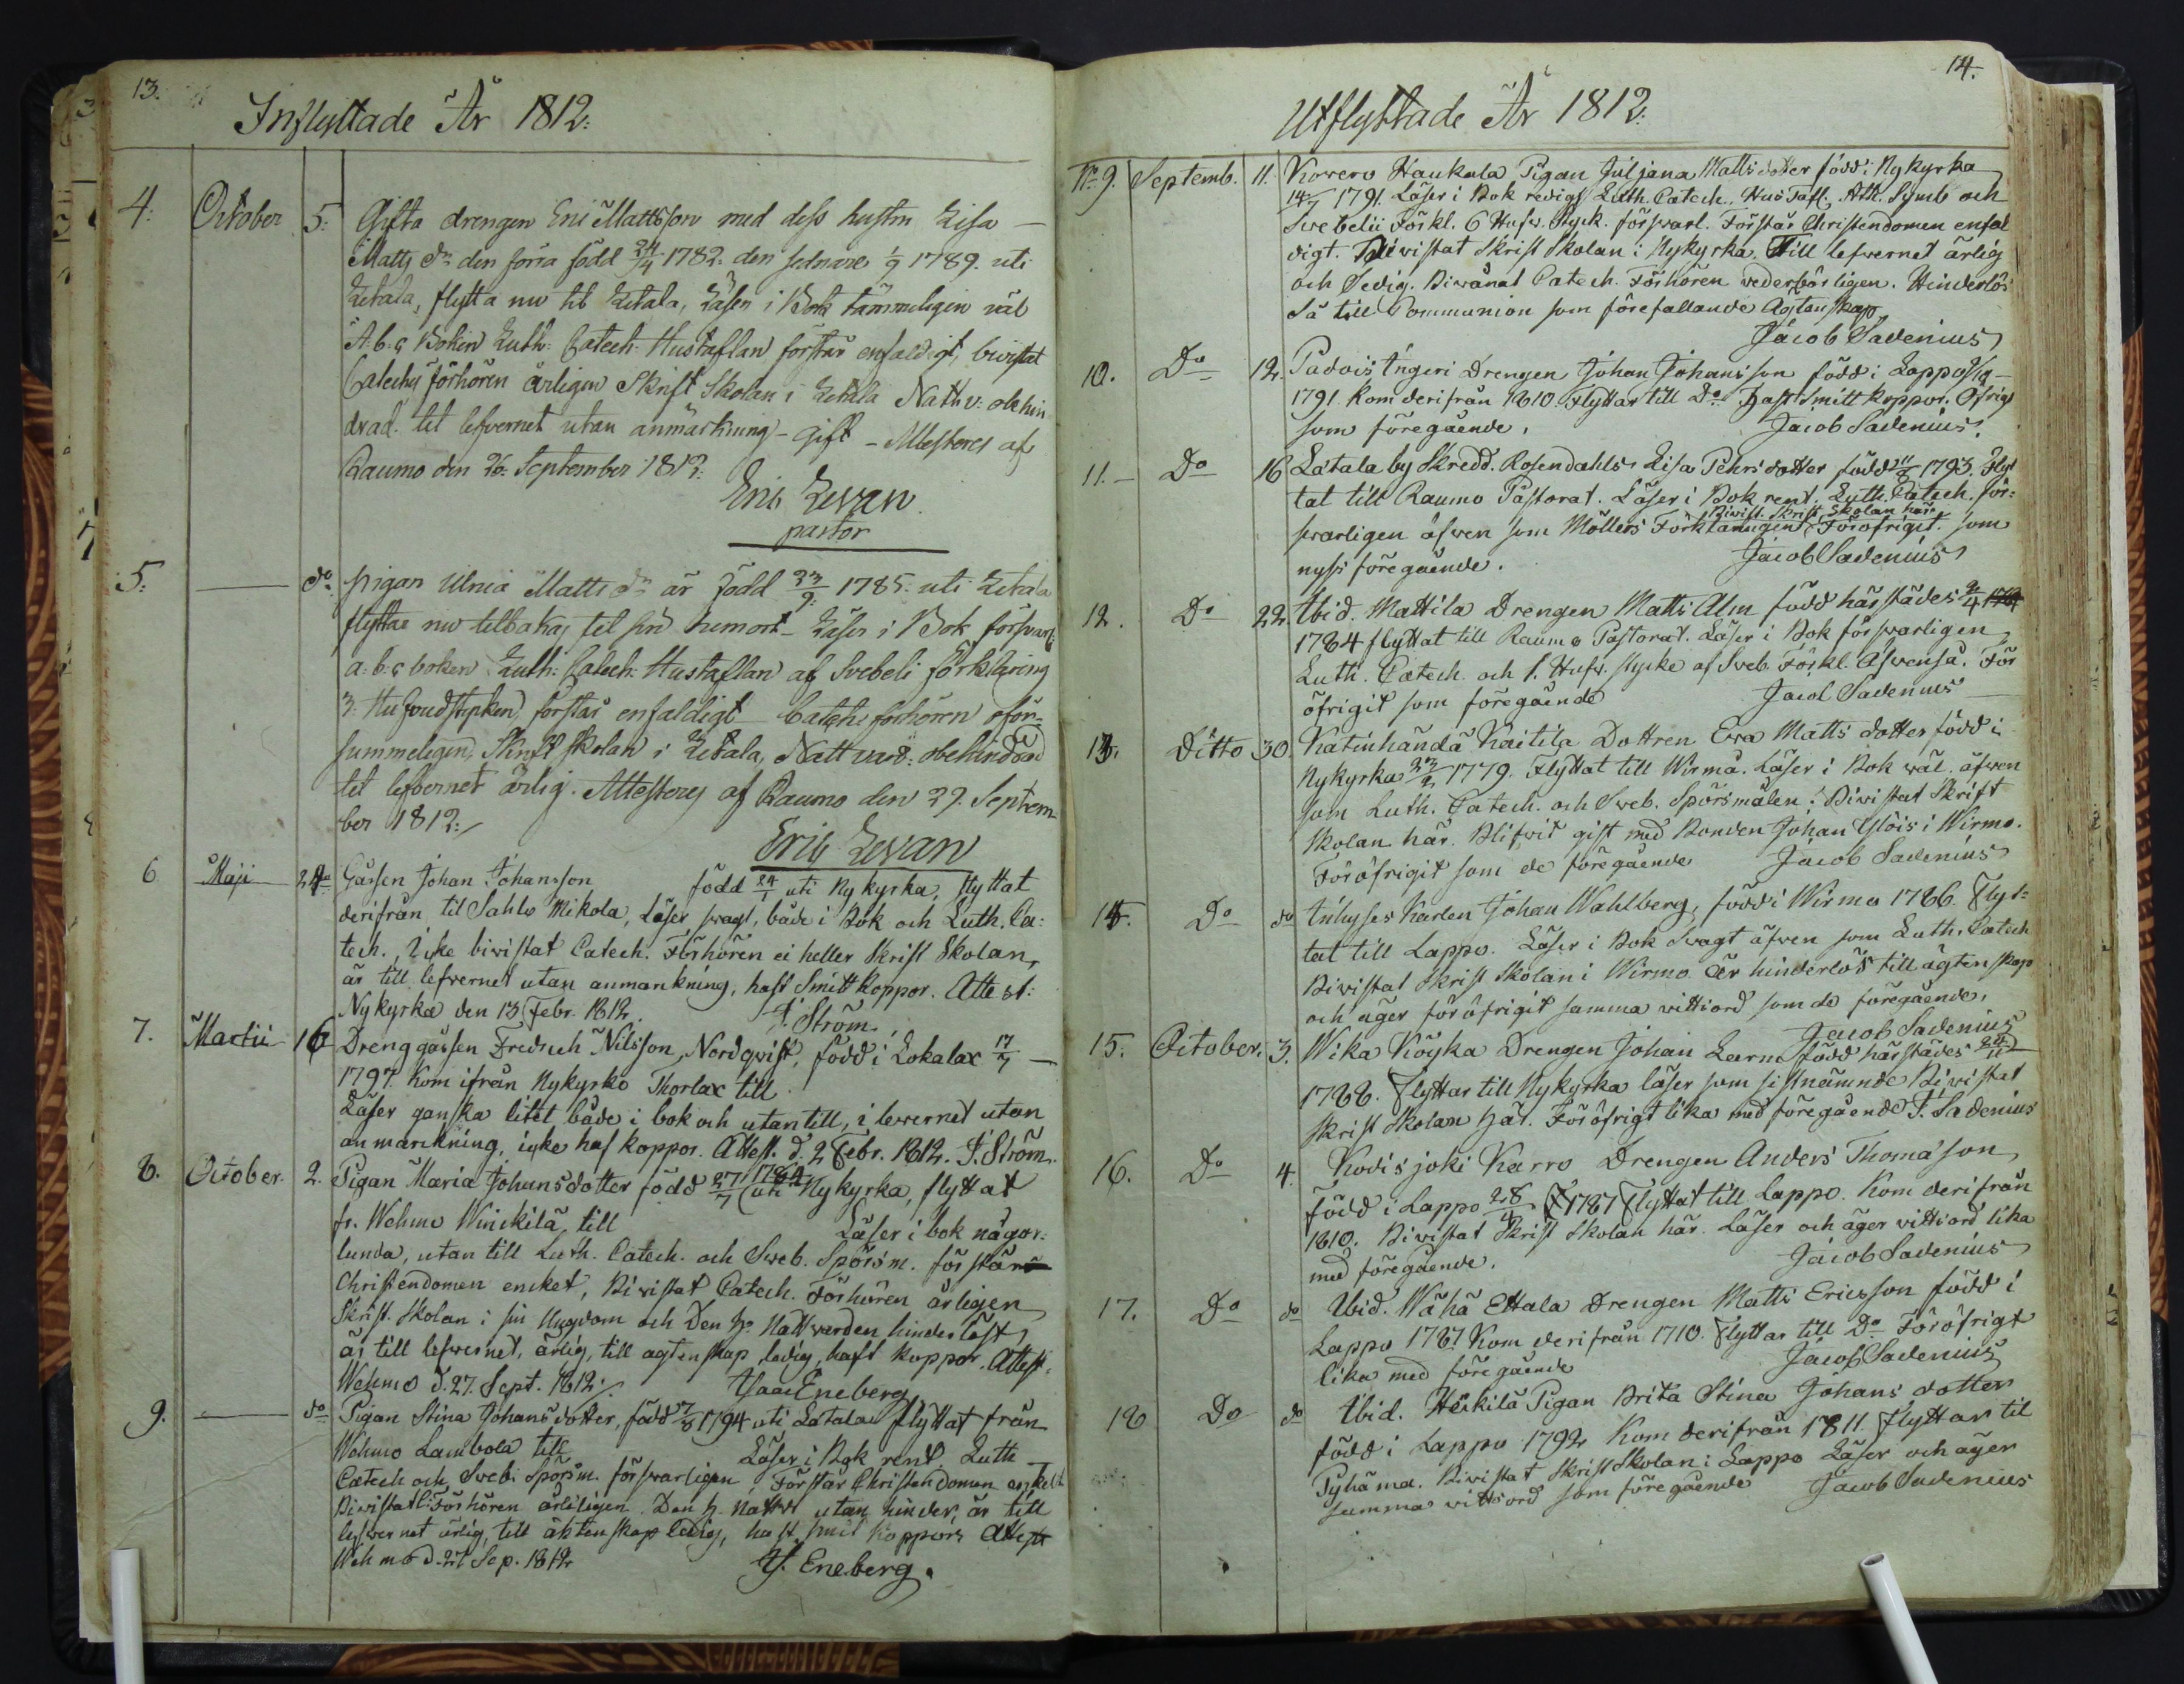 13.
Inflyttade År 1812:
4: October 5: Gifta drengen Eric Mattsson med dess hustru Lisa
Matts dr den förra född 24/4 1782. den sednare 1/9 1789. uti
Letala, flytta nu til Letala, Läser i Bok tämmeligen väl
A:b:c Boken Luth: Catech: Hustaflan förstår enfaldigt, bivistat
Catechis förhören årligen Skrift Skolan i Letala Nattv: obehin
drad. til lefvernet utan anmärkning - gift - Attesteres af
Raumo den 26: September 1812:
Eric Levan
pastor
5: — do pigan Ulrica Matts dr är född 23/9: 1785: uti Letala
flyttar nu tilbakas til sin hemort - Läser i Bok försvarl:
a:b:c boken Luth: Catech: Hustaflan af Svebeli förklaring
3: Hufvudstycken, förstår enfaldigt - Catechis förhören oför-
summeligen, Skrift skolan i Letala, Nattvard: obehindrad
til lefvernet ärlig. Attesteres af Raumo den 29. Septem
ber 1812:
Eric Levan
6 Maji 24 Gåssen Johan Johansson född 24/1 uti Nykyrka, flyttat
derifrån til Sahlo Mikola, Läser svagt, både i Bok och Luth. Ca:
tech. Icke bivistat Catech. Förhören ei heller Skrift Skolan,
är till lefvernet utan anmärkning, haft Smittkoppor. Attest:
Nykyrka den 13 Febr. 1812. J. Ström
7. Martii 16 Drenggåssen Fredrich Nilsson, Nordqvist, född i Lokalax 17/7 —
1797. Kom ifrån Nykyrko Thorlax till
Läser ganska litet både i bok och utantill, i levernet utan
anmärckning, icke haf koppor. Attest. d. 2 Febr. 1812. J. Ström
8. October. 2. Pigan Maria Johansdotter född 27/7 uti Nykyrka, flyttat
fr. Wehmo Winckilä, till Läser i bok någor:
lunda, utan till Luth. Catech. och Sweb. Spörsm. förstår
Christendomen encket, Bivistat Catech. Förhören årligen
Skrift. Skolan i sin Ungdom och Den h. Nattvarden hinderlöst,
är till lefvernet, ärlig, till ägtenskap ledig, haft koppor. Attest.
Wehmo d. 27. Sept. 1812. Isaac Eneberg
9. — do Pigan Stina Johansdotter, född 17/8 1794 uti Letala flyttat från
Wehmo Lambola till Läser i Bok rent. Luth
Catech och Sveb. Spörsm. försvarligen Förstår Christendomen enkelt
Bivistat C. Förhören årligen. Den h. Nattv: utan hinder, är till
lefvernet ärlig, till äktenskap ledig, haft smitkoppor. Attest
Wehmo d. 27 Sep. 1812 Is. Eneberg.
14.
Utflyttade År 1812.
No 9. Septemb. 11. Korvero Haukala Pigan Juljana Mattsdotter född i Nykyrka
14/7 1791. Läser i Bok redigt Luth. Catech. Hus Tafl. Ath. Symb och
Svebelii Förkl. 6 Hufv. Styck. försvarl. Förstår Christendomen enfal
digt. Bivistat Skrift Skolan i Nykyrka. Till lefvernet ärlig
och Sedig. Bivånat Catech. Förhören vederbörligen. Hinderlös
Så till Communion som förefallande Ägtenskap
Jacob Sadenius
10. Do 12. Padois Ingeri Drengen Johan Johansson född i Lappo
1791. Kom derifrån 1810. Flyttar till Do. Haft Smittkoppor. Öfrigt
som föregående. Jacob Sadenius.
11. Do 16 Letala by Skredd. Rosendahls Lisa Pehrsdotter född 1793. Flyt
tat till Raumo Pastorat. Läser i Bok rent. Luth. Catech. för:
svarligen äfven som Möllers Förklaringen, Bivist. Skrift Skolan här. Föröfrigit som
nyss föregående. Jacob Sadenius
12. Do 22 Ibid. Mattila Drengen Matts Alm född härstädes 2/4
1784 flyttat till Raumo Pastorat. Läser i Bok försvarligen
Luth. Catech. och 1. Hufv. stycke af Sveb. Förkl. Äfvenså. För
öfrigit som föregående Jacob Sadenius
13. Ditto 30. Katinhändä Kaitila Dottren Ewa Mattsdotter född i
Nykyrka 23/2 1779. Flyttat till Wirmo. Läser i Bok wäl. äfven
som Luth. Catech. och Sveb. Spörsmålen. Bivistat Skrift
Skolan här. Blifvit gift med Bonden Johan Yföis i Wirmo.
Föröfrigit som de föregående Jacob Sadenius
14. Do do Inhyses Karlen Johan Wahlberg, född i Wirmo 1786. Flyt-
tat till Lappo. Läser i Bok Svagt äfven som Luth. Catech
Bivistat Skrift Skolan i Wirmo. Är hinderlös till ägtenskap
och äger föröfrigit samma vittsord som de föregående.
Jacob Sadenius
15. October. 3. Wika Köykä Drengen Johan Learn född härstädes 24/11
1788. Flyttar till Nykyrka läser som sistnämnde Bivistat
Skrift Skolan här. Föröfrigt lika med föregående J. Sadenius
16. Do 4. Kodisjoki Karro Drengen Anders Thomasson
född i Lappo 28/4 1787 Flyttat till Lappo. Kom derifrån
1810. Bivistat Skrift Skolan här. Läser och äger vittsord lika
med föregående. Jacob Sadenius
17. Do do Ibid. Wähä Ettala Drengen Matts Ericsson född i
Lappo 1787. Kom derifrån 1710. Flyttar till Do Föröfrigt
lika med föregående Jacob Sadenius
18 Do do Ibid. Heikilä Pigan Brita Stina Johansdotter
född i Lappo 1792 Kom derifrån 1811. Flyttar til
Pyhämä. Bivistat Skrift Skolan i Lappo Läser och äger
samma vittsord som föregående Jacob Sadenius